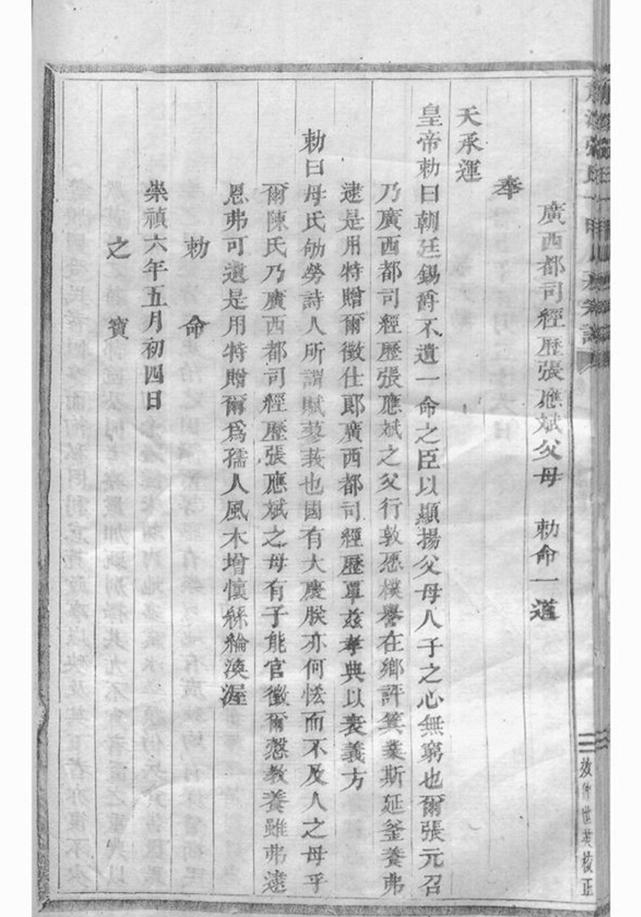 廣西都司經歷張應斌父母 勅命一道
奉
天承運
皇帝勅曰朝廷錫爵不遺一命之臣以顯揚父母人子之心無窮也爾張元召
乃廣西都司經歷張應斌之父行敦慤樸譽在鄉評箕業斯延釜養弗
逮是用特贈爾徵仕郎廣西都司經歷覃茲孝典以表義方
勅曰母氏劬勞詩人所謂賦蓼莪也國有大慶朕亦何恡而不及人之母乎
爾陳氏乃廣西都司經歷張應斌之母有子能官徵爾慇教養雖弗逮
恩弗可遺是用特贈爾為孺人風木增懷綵綸渙渥
勅命
崇禎六年五月初四日
之寶